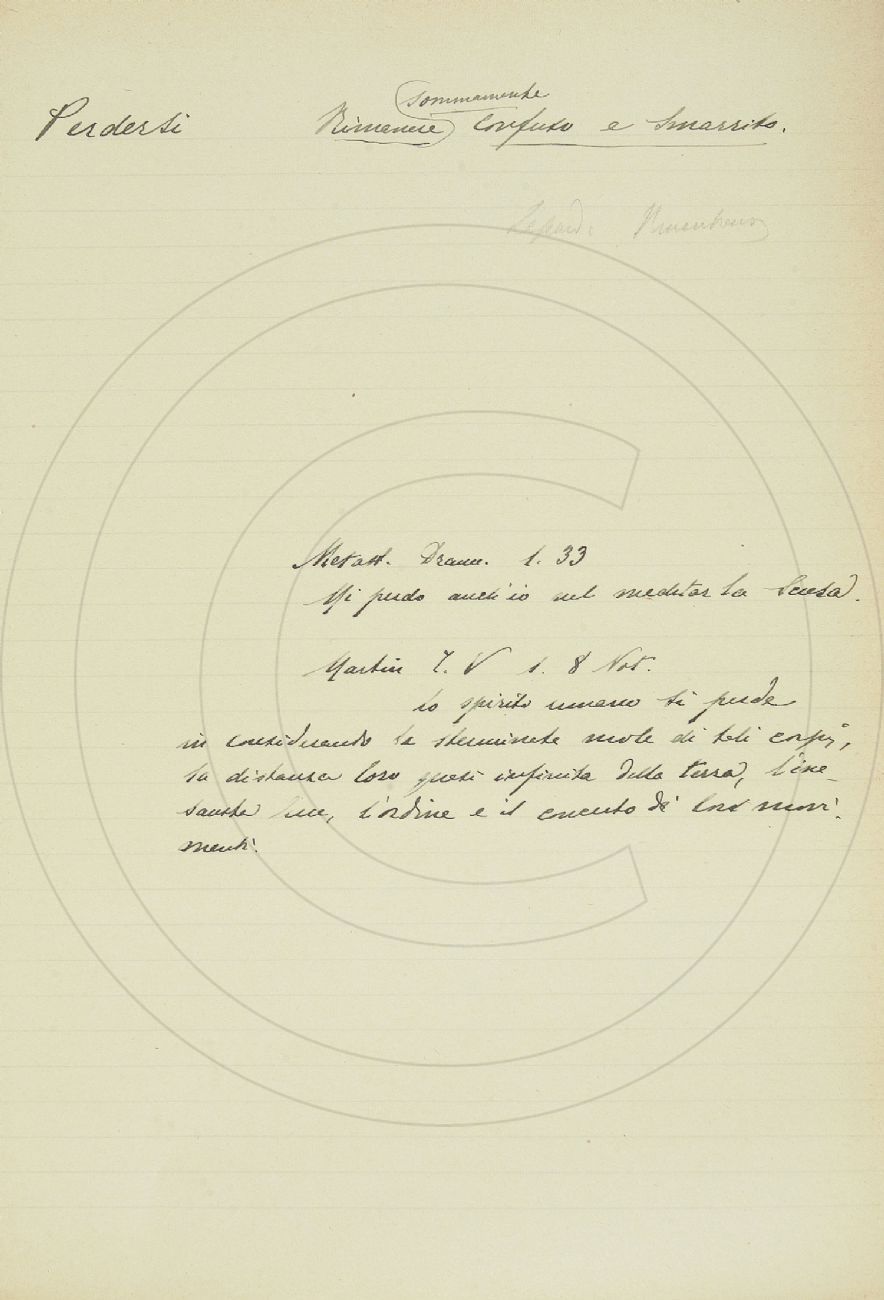 sommamente
Perdersi Rimanere Confuso e Smarrito.
Leopardi
Metast. Dram. 1. 33
Mi perdo anch'io nel meditar la Scusa.
Martin T. V 1. 8 Not.
lo spirito umano si perde
in considerando la sterminata mole di tali corpi,
la distanza loro quasi infinita della terra, l'ine-
sausta luce, l'ordine e il concento di loro movi-
menti.